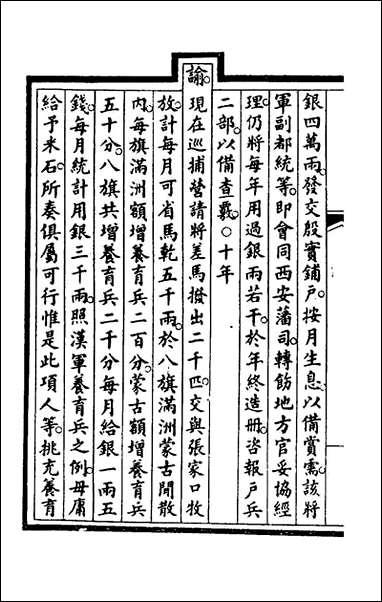 銀四萬兩發交殷實鋪戶按月生息以備賞需該將
軍副都統等即會同西安藩司轉飭地方官妥協經
理仍將每年用過銀兩若干於年終造冊咨報戶兵
二部以備查覈○十年
諭現在巡捕營請將差馬撥出二千匹交與張家口牧
放計每月可省馬乾五千兩於八旗滿洲蒙古閒散
內每旗滿洲額增養育兵二百分蒙古額增養育兵
五十分八旗共增養育兵二千分每月給銀一兩五
錢每月統計用銀三千兩照漢軍養育兵之例毋庸
給予米石所奏俱屬可行惟是此項人等挑充養育